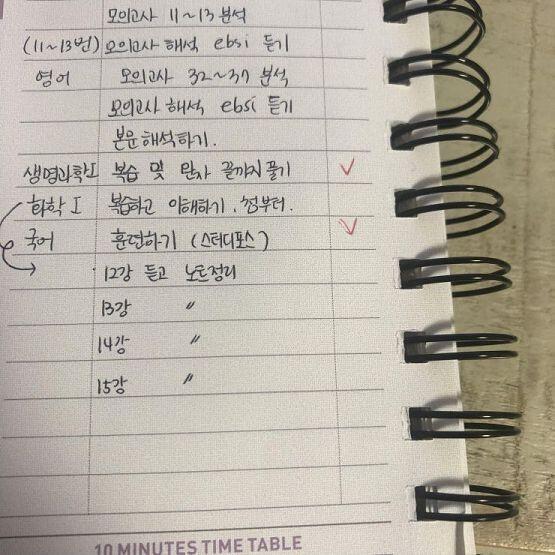 모의고사 11~13 분석
(11~13번) 모의고사 해석 ebsi 듣기
영어 모의고사 32~37 분석
모의고사 해석 ebsi 듣기
본문 해석하기.
생명과학I 복습 및 끝까지 풀기
화학 I 복습하고 이해하기. 첨부터.
국어 훈련하기 (스터디포스)
12강 듣고 노트정리
13강 〃
14강 〃
15강 〃
10 MINUTES TIME TABLE